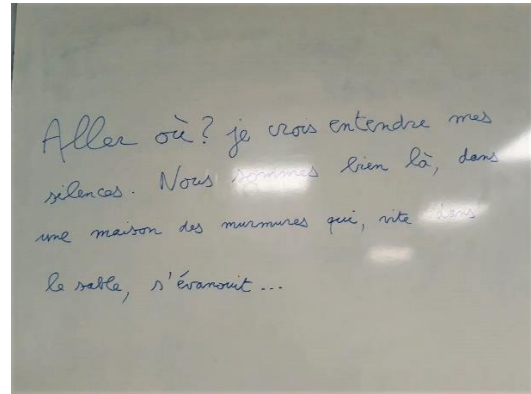 Aller où? je crois entendre mes
silences. Nous sommes bien là, dans
une maison des murmures qui, vite dans
le sable, s'évanouit...